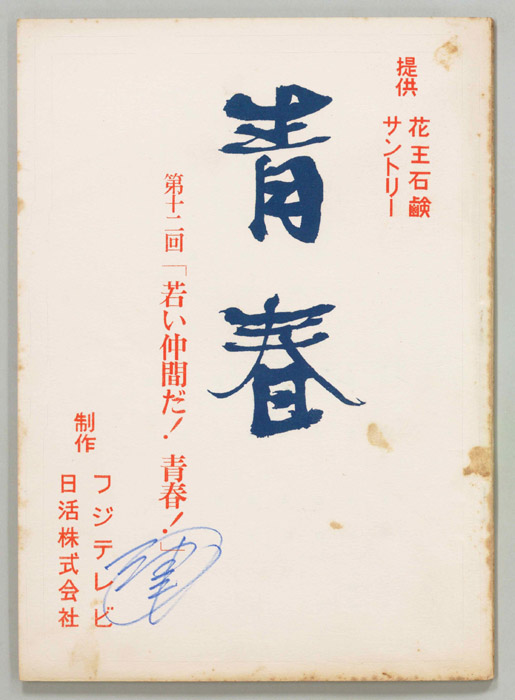 提供
花王石鹸
サントリー
青春
第十二回「若い仲間だ！青春！」
制作
フジテレビ
日活株式会社